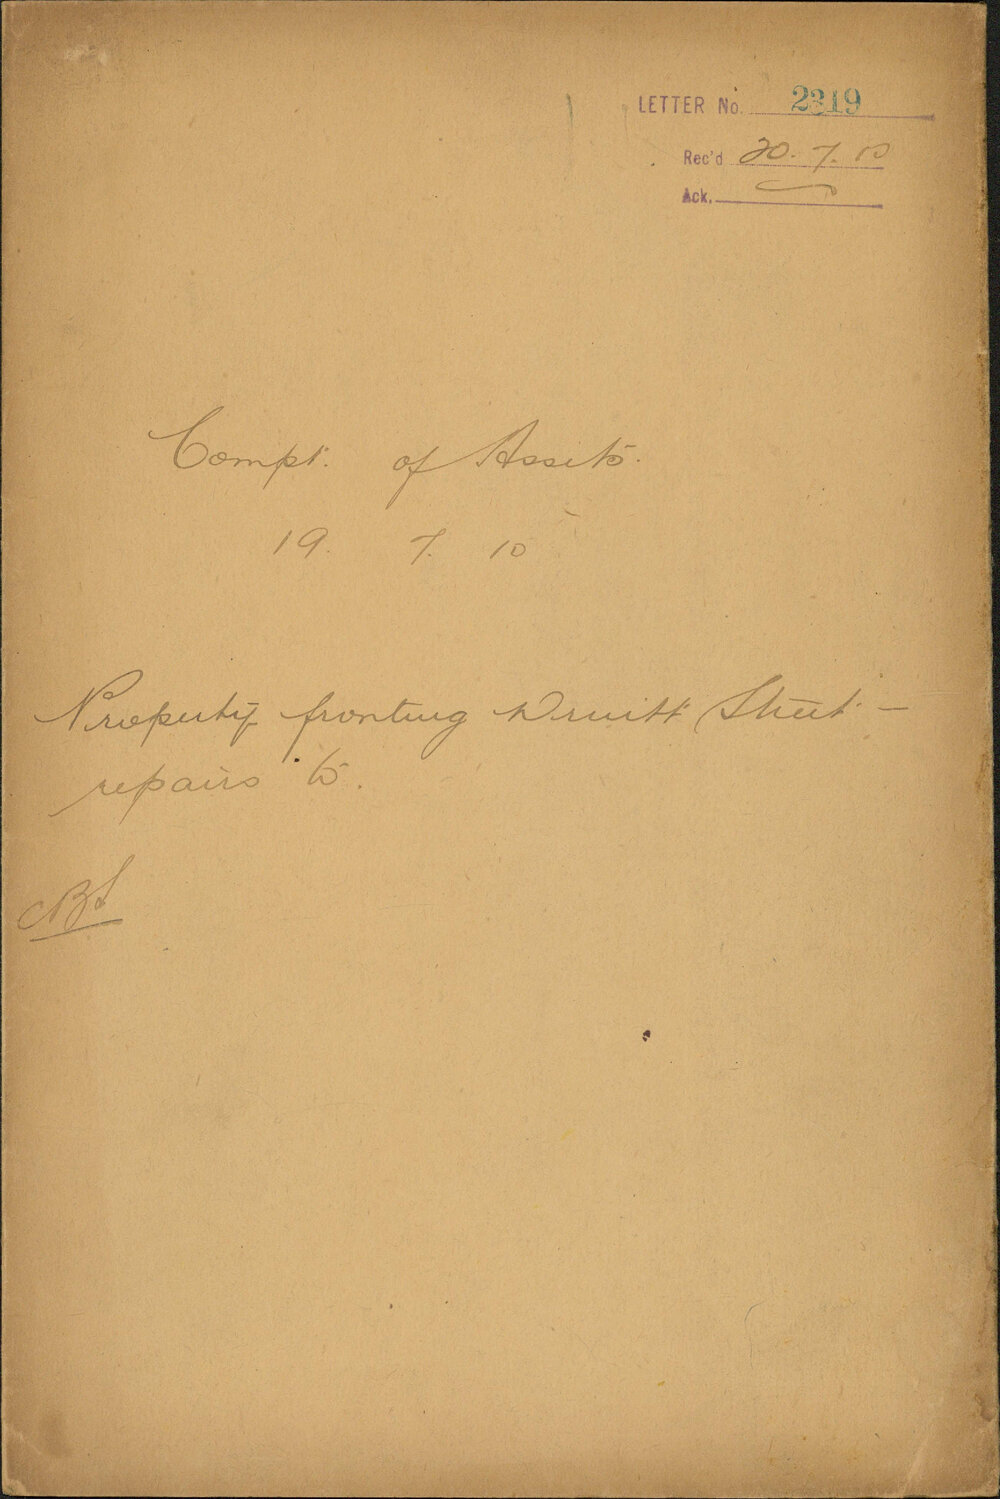 LETTER No. 2319
Rec'd 20. 7. 10
Ack.
Compt. of Assets.
19. 7. 10
Property fronting Druitt Street —
repairs to.